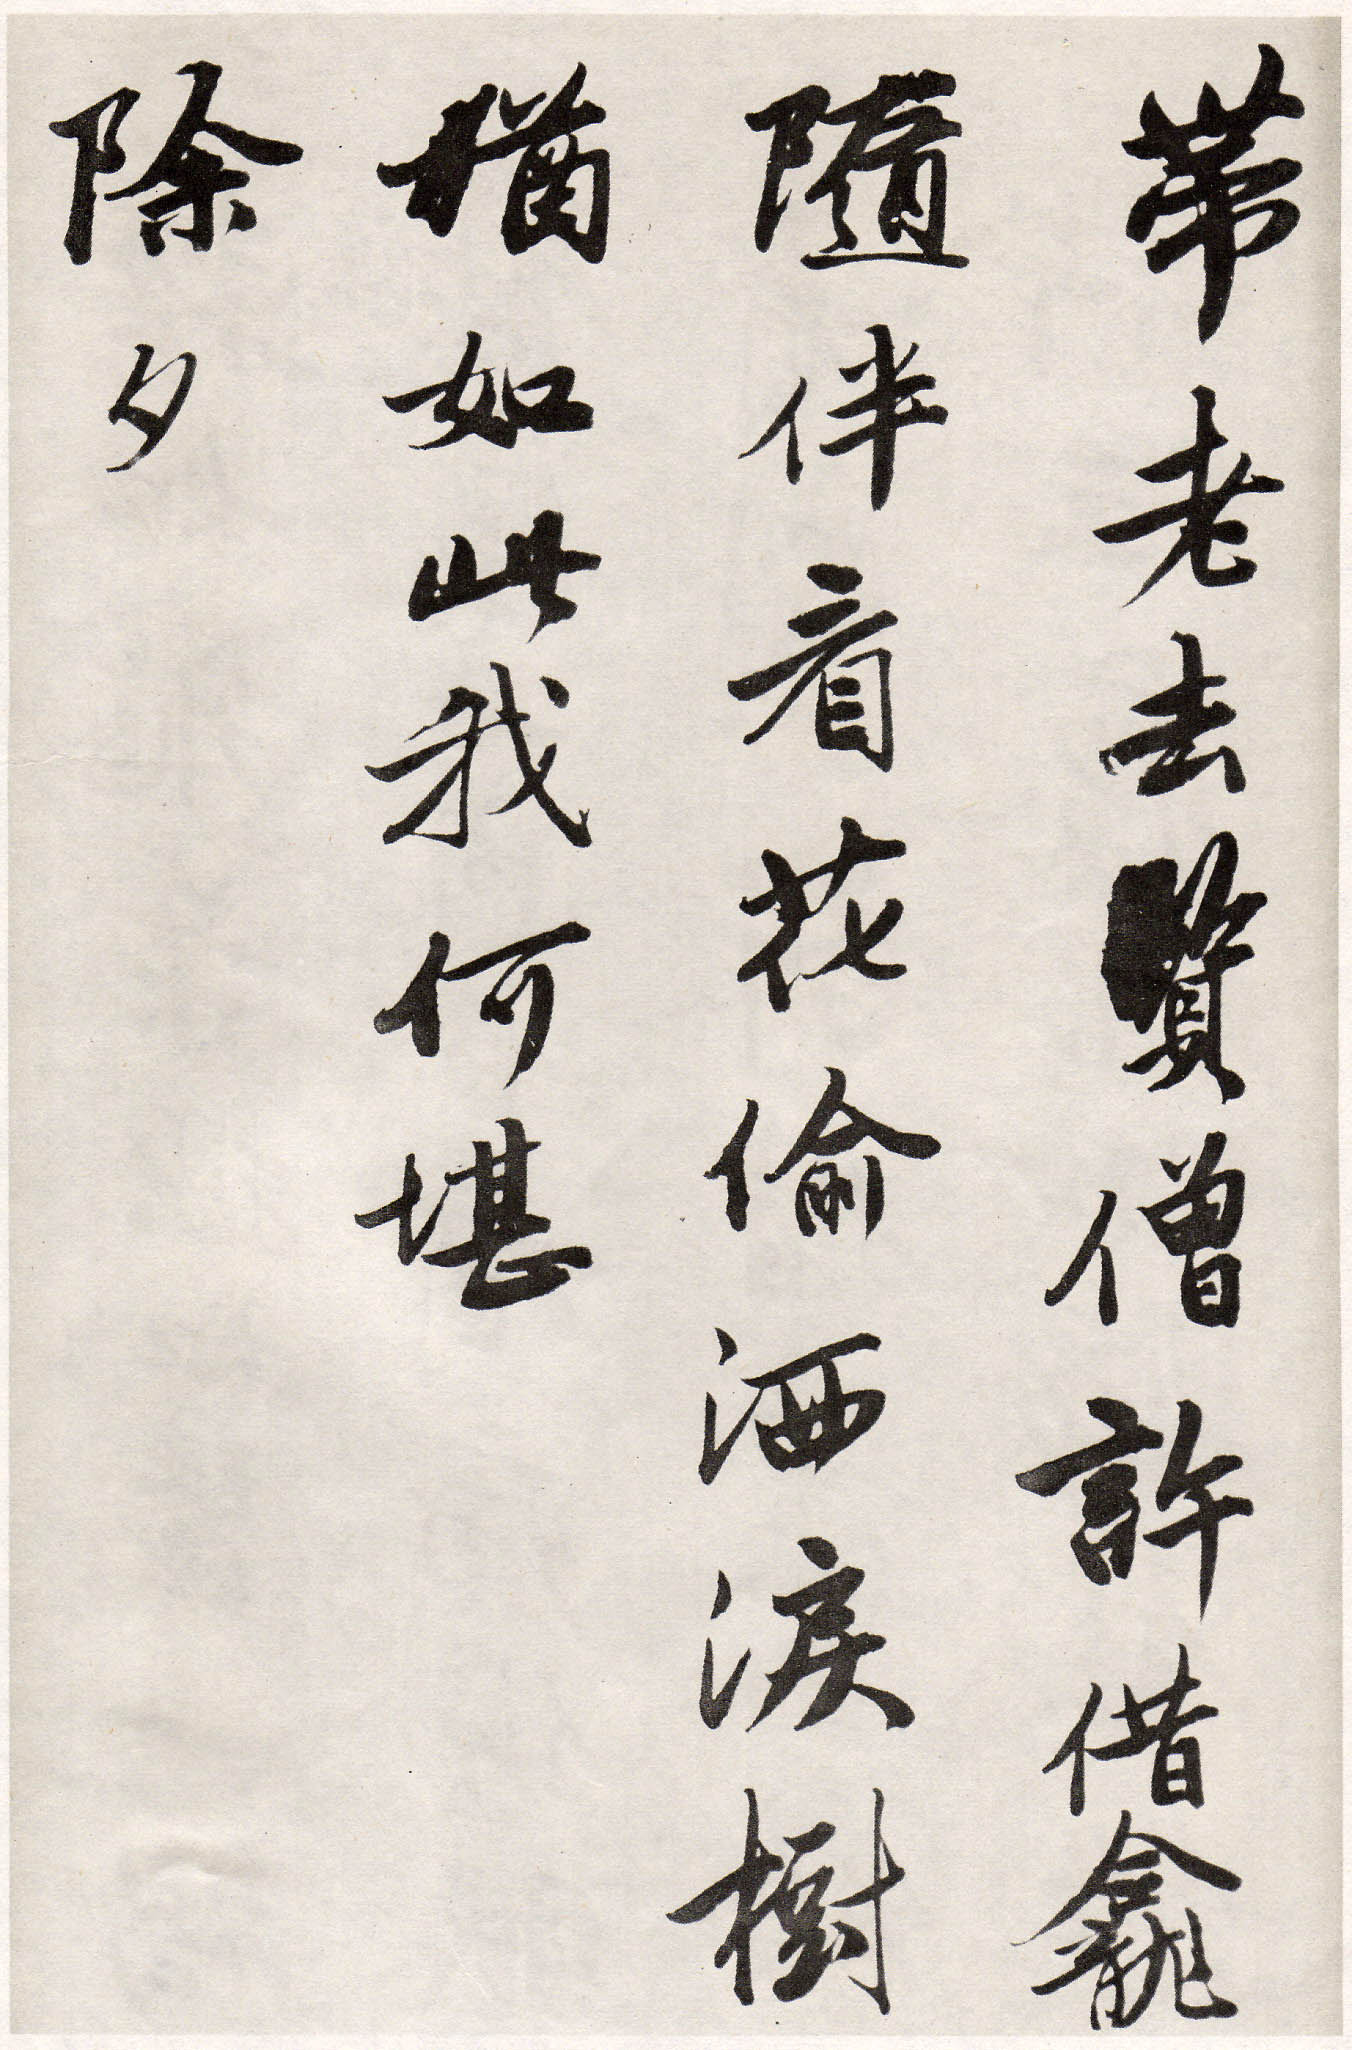 带老去贤僧許借龕
隨伴看花偷洒淚樹
猶如此我何堪
除夕